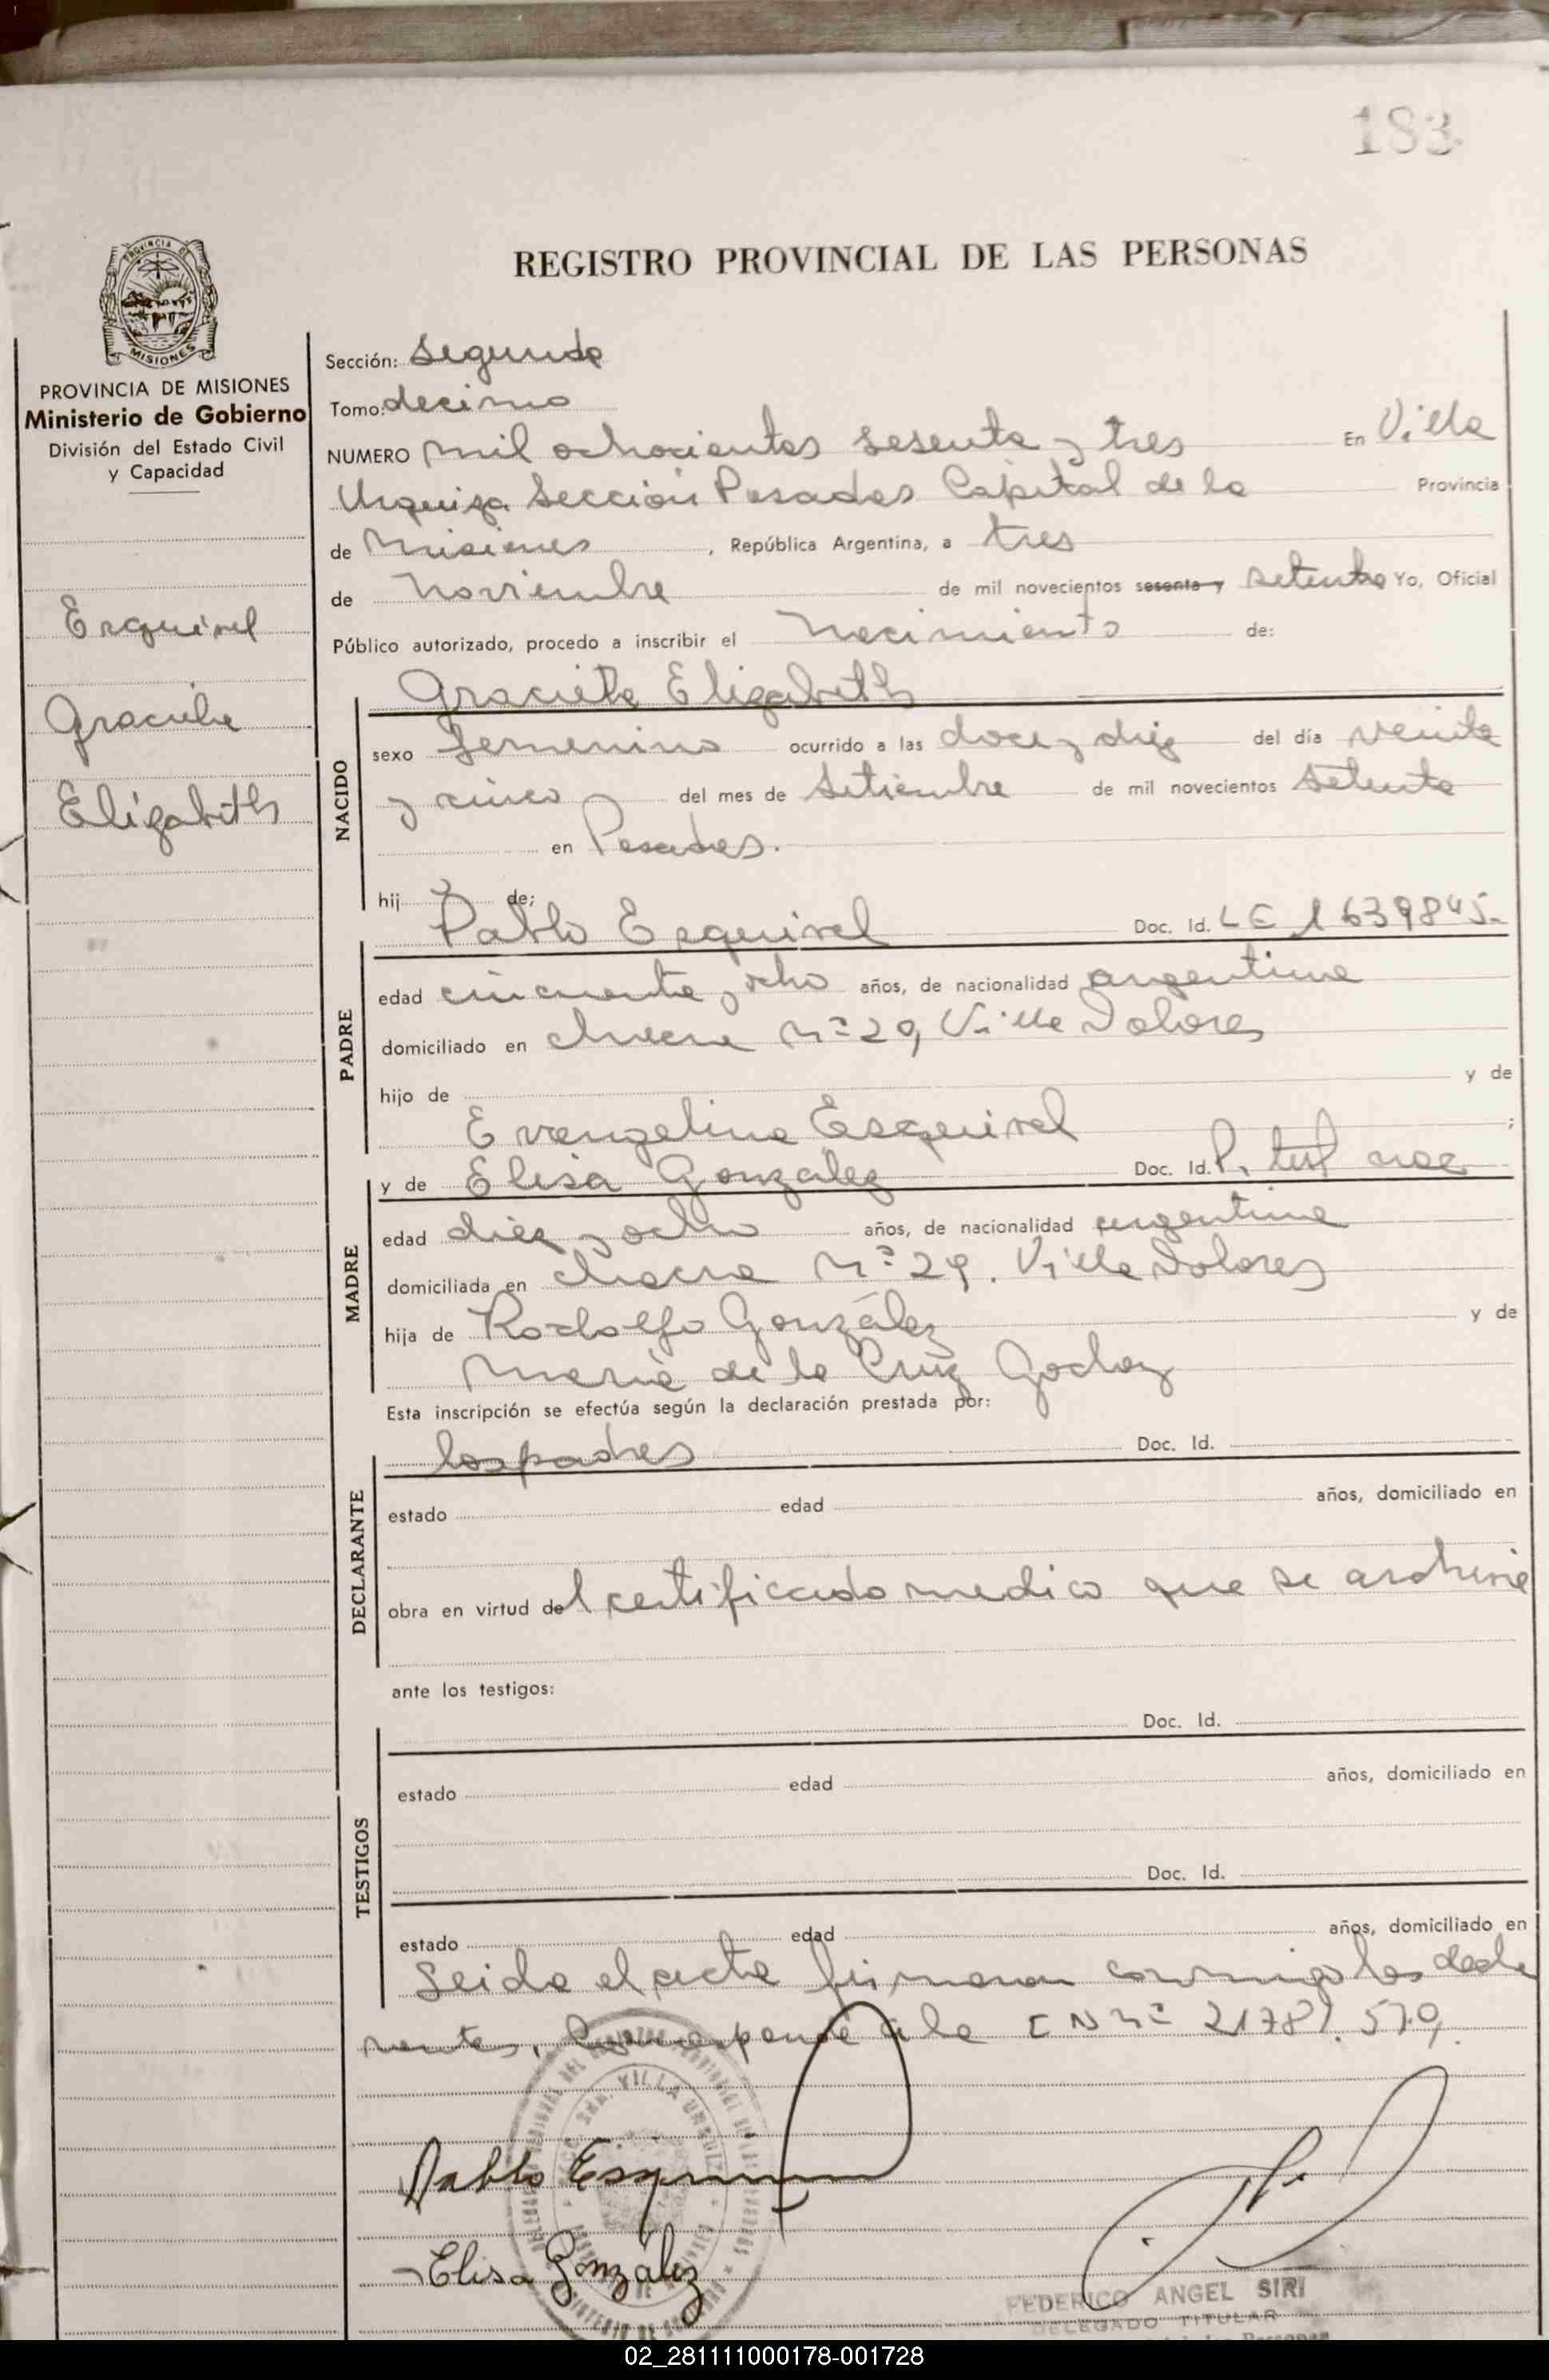 183
REGISTRO PROVINCIAL DE LAS PERSONAS
PROVINCIA DE MISIONES
PROVINCIA DE MISIONES
Ministerio de Gobierno
División del Estado Civil
y Capacidad
Esquivel
Graciela
Elizabeth
Sección: Segunda
Tomo: decimo
NUMERO mil ochocientos sesenta y tres En Villa
Urquiza Sección Posadas Capital de la Provincia
de Misiones , República Argentina, a tres
de Noviembre de mil novecientos sesenta y setenta Yo, Oficial
Público autorizado, procedo a inscribir el Nacimiento de:
Graciela Elizabeth
NACIDO
sexo femenino ocurrido a las doce y diez del día veinte
y cinco del mes de Setiembre de mil novecientos setenta
en Posadas.
hij a de;
Pablo Esquivel Doc. Id. LE 1639845.
PADRE
edad cincuenta y ocho años, de nacionalidad argentina
domiciliado en chacra nº 29, Villa Dolores
hijo de y de
Evangelina Esquivel ;
y de Elisa González Doc. Id. P. test nac
MADRE
edad diez y ocho años, de nacionalidad argentina
domiciliada en chacra nº 29. Villa Dolores
hija de Rodolfo González y de
María de la Cruz Godoy
Esta inscripción se efectúa según la declaración prestada por:
los padres Doc. Id.
DECLARANTE
estado edad años, domiciliado en
obra en virtud del certificado medico que se archiva
ante los testigos:
Doc. Id.
TESTIGOS
estado edad años, domiciliado en
Doc. Id.
estado edad años, domiciliado en
Leida el acta firmaron conmigo los decla
rantes. Corresponde a la CN nº 21781.579.
VILLA URQUIZA
Pablo Esquivel
Elisa González
FEDERICO ANGEL SIRI
DELEGADO TITULAR
02_281111000178-001728